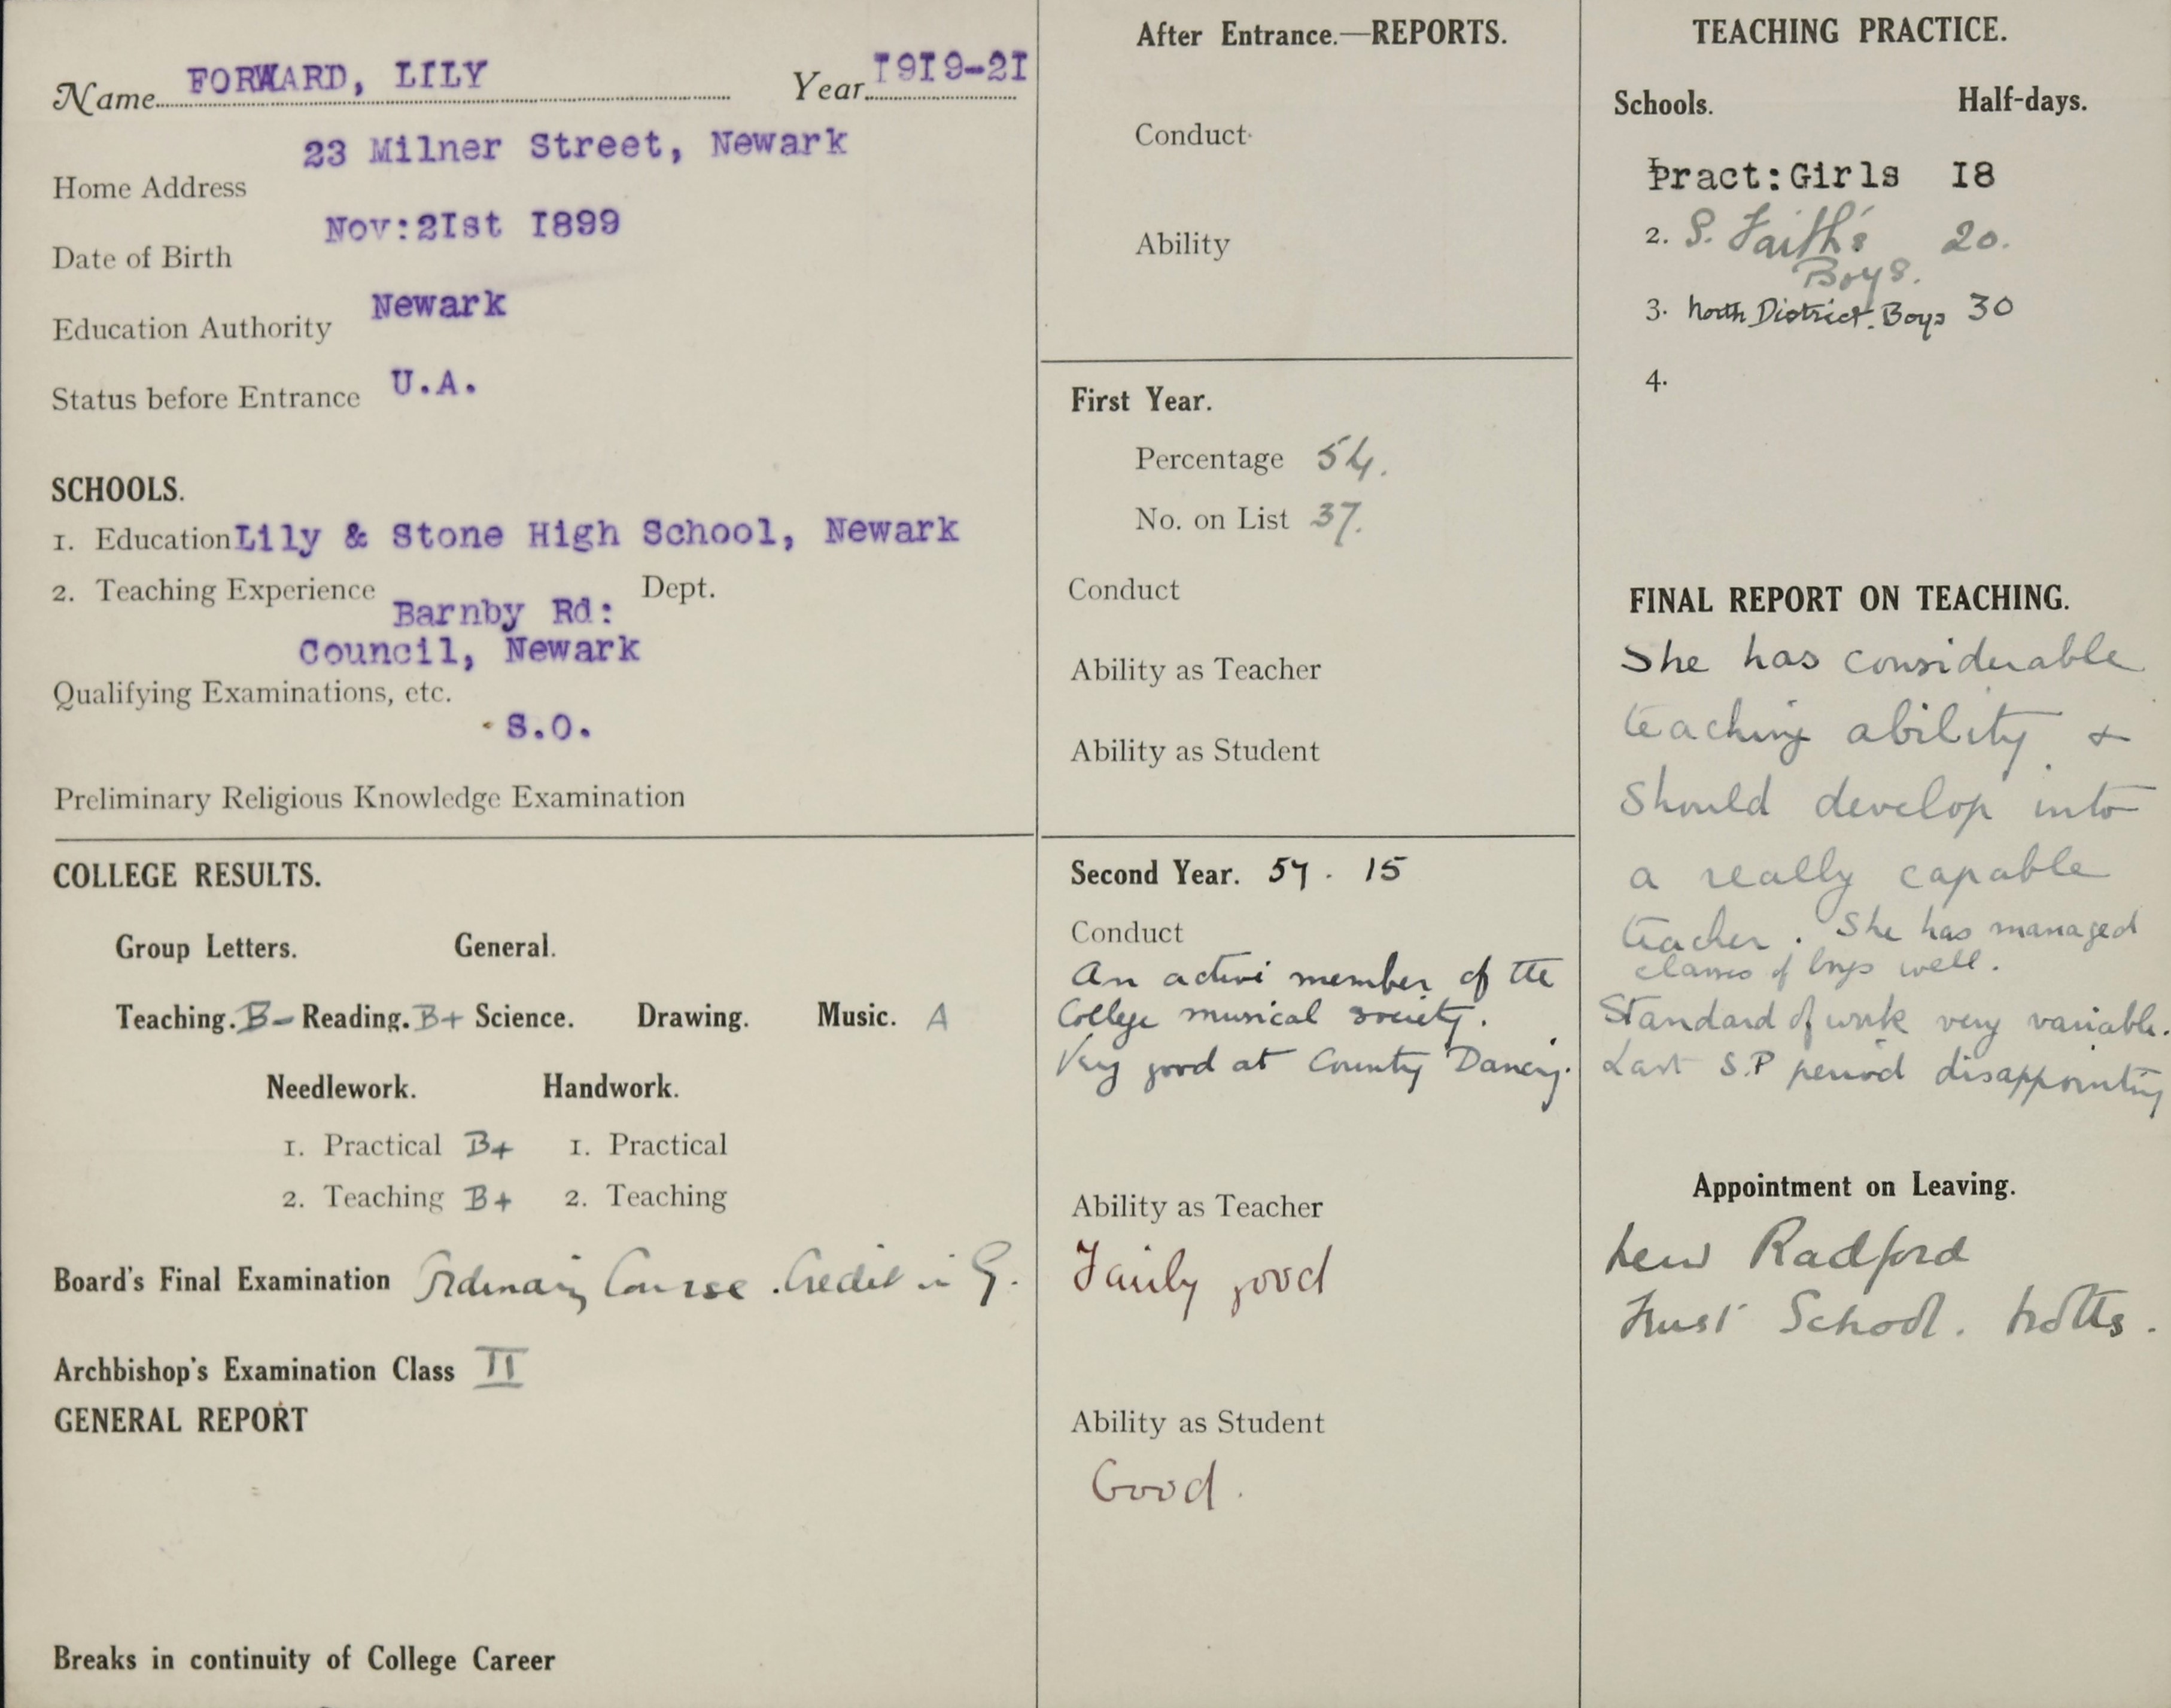 Name FORWARD, LILY Year 1919-21
23 Milner Street, Newark
Home Address
Nov:21st 1899
Date of Birth
Newark
Education Authority
Status before Entrance U.A.
SCHOOLS.
1. Education Lily & Stone High School, Newark
2. Teaching Experience Dept.
Barnby Rd:
Council, Newark
Qualifying Examinations, etc.
S.O.
Preliminary Religious Knowledge Examination
COLLEGE RESULTS.
Group Letters. General.
Teaching. B- Reading. B+ Science. Drawing. Music. A
Needlework. Handwork.
1. Practical B+ 1. Practical
2. Teaching B+ 2. Teaching
Board's Final Examination Ordinary Course. Credit in G.
Archbishop's Examination Class II
GENERAL REPORT
Breaks in continuity of College Career
After Entrance.—REPORTS.
Conduct
Ability
First Year.
Percentage 54.
No. on List 37.
Conduct
Ability as Teacher
Ability as Student
Second Year. 57. 15
Conduct
An active member of the
College musical society.
Very good at Country Dancing.
Ability as Teacher
Fairly good
Ability as Student
Good.
TEACHING PRACTICE.
Schools. Half-days.
Pract:Girls 18
2. S. Faith's 20.
Boys.
3. North District. Boys 30
4.
FINAL REPORT ON TEACHING.
She has considerable
teaching ability &
should develop into
a really capable
teacher. She has managed
classes of boys well.
Standard of work very variable.
Last S.P period disappointing
Appointment on Leaving.
New Radford
Trust School. Notts.